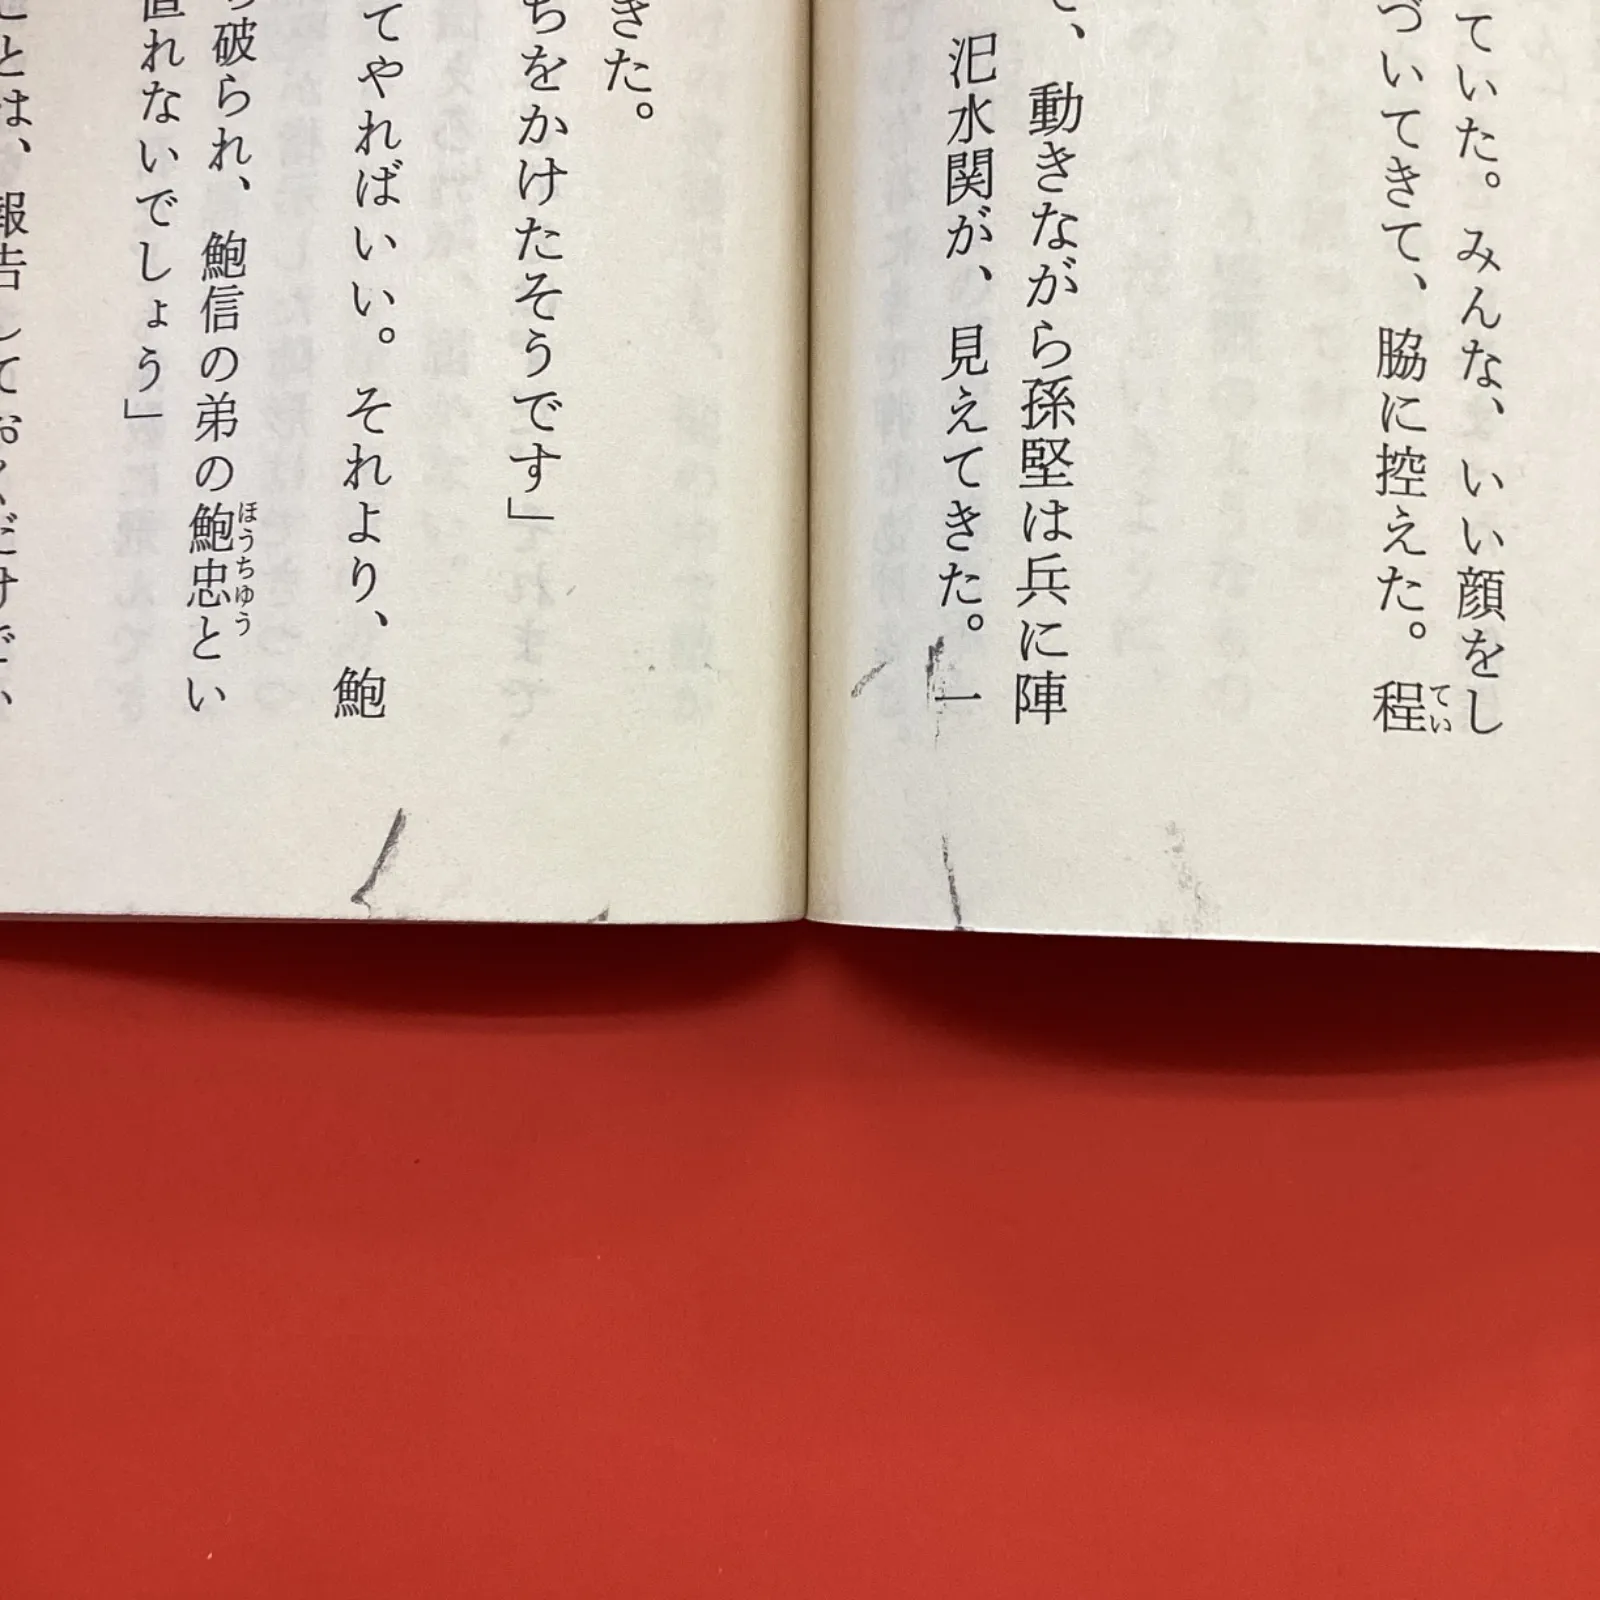 ていた。みんな、いい顔をし
づいてきて、脇に控えた。程
てい
、動きながら孫堅は兵に陣
汜水関が、見えてきた。一
きた。
ちをかけたそうです」
てやればいい。それより、鮑
破られ、鮑信の弟の鮑忠とい
ほうちゆう
直れないでしょう」
とは、報告しておくだけで、